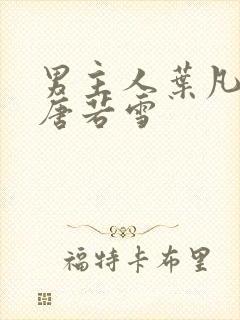 男主人葉凡
唐若雪
福特卡布里